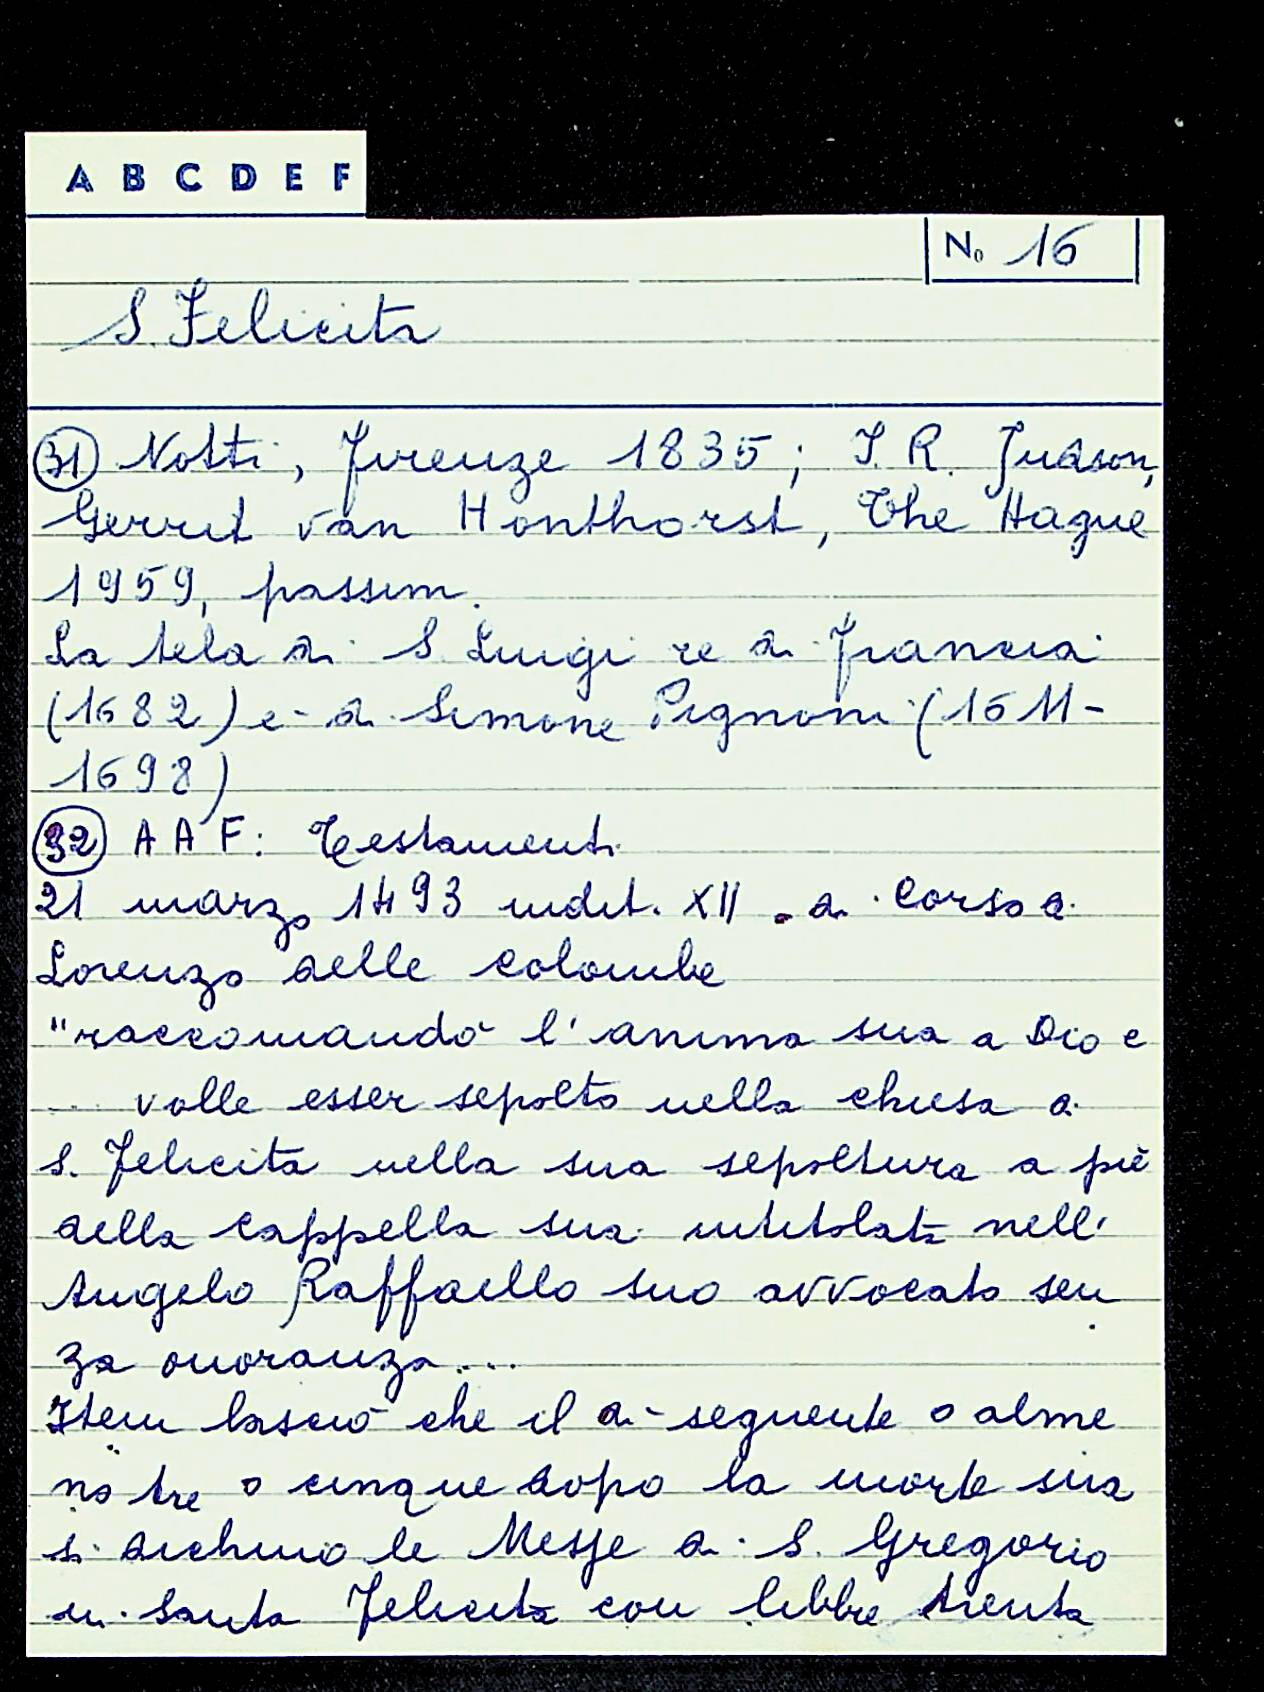 A B C D E F
No 16
S. Felicita
(31) Notti, Firenze 1835; J. R. Judson,
Gerrit van Honthorst, The Hague
1959, passim.
La tela di S. Luigi re di Francia
(1682) è di Simone Pignoni (1611-
1698)
(32) AAF: Testamenti
21 marzo 1493 indit. XII. di Corso di
Lorenzo delle Colombe
"raccomandò l'anima sua a Dio e
... volle esser sepolto nella chiesa di
S. Felicita nella sua sepoltura a piè
della cappella sua intitolata nell'
Angelo Raffaello suo avvocato sen
za onoranza...
Item lasciò che il dì seguente o alme
no tre o cinque dopo la morte sua
si dichino le Messe di S. Gregorio
in Santa Felicita con libbre trenta